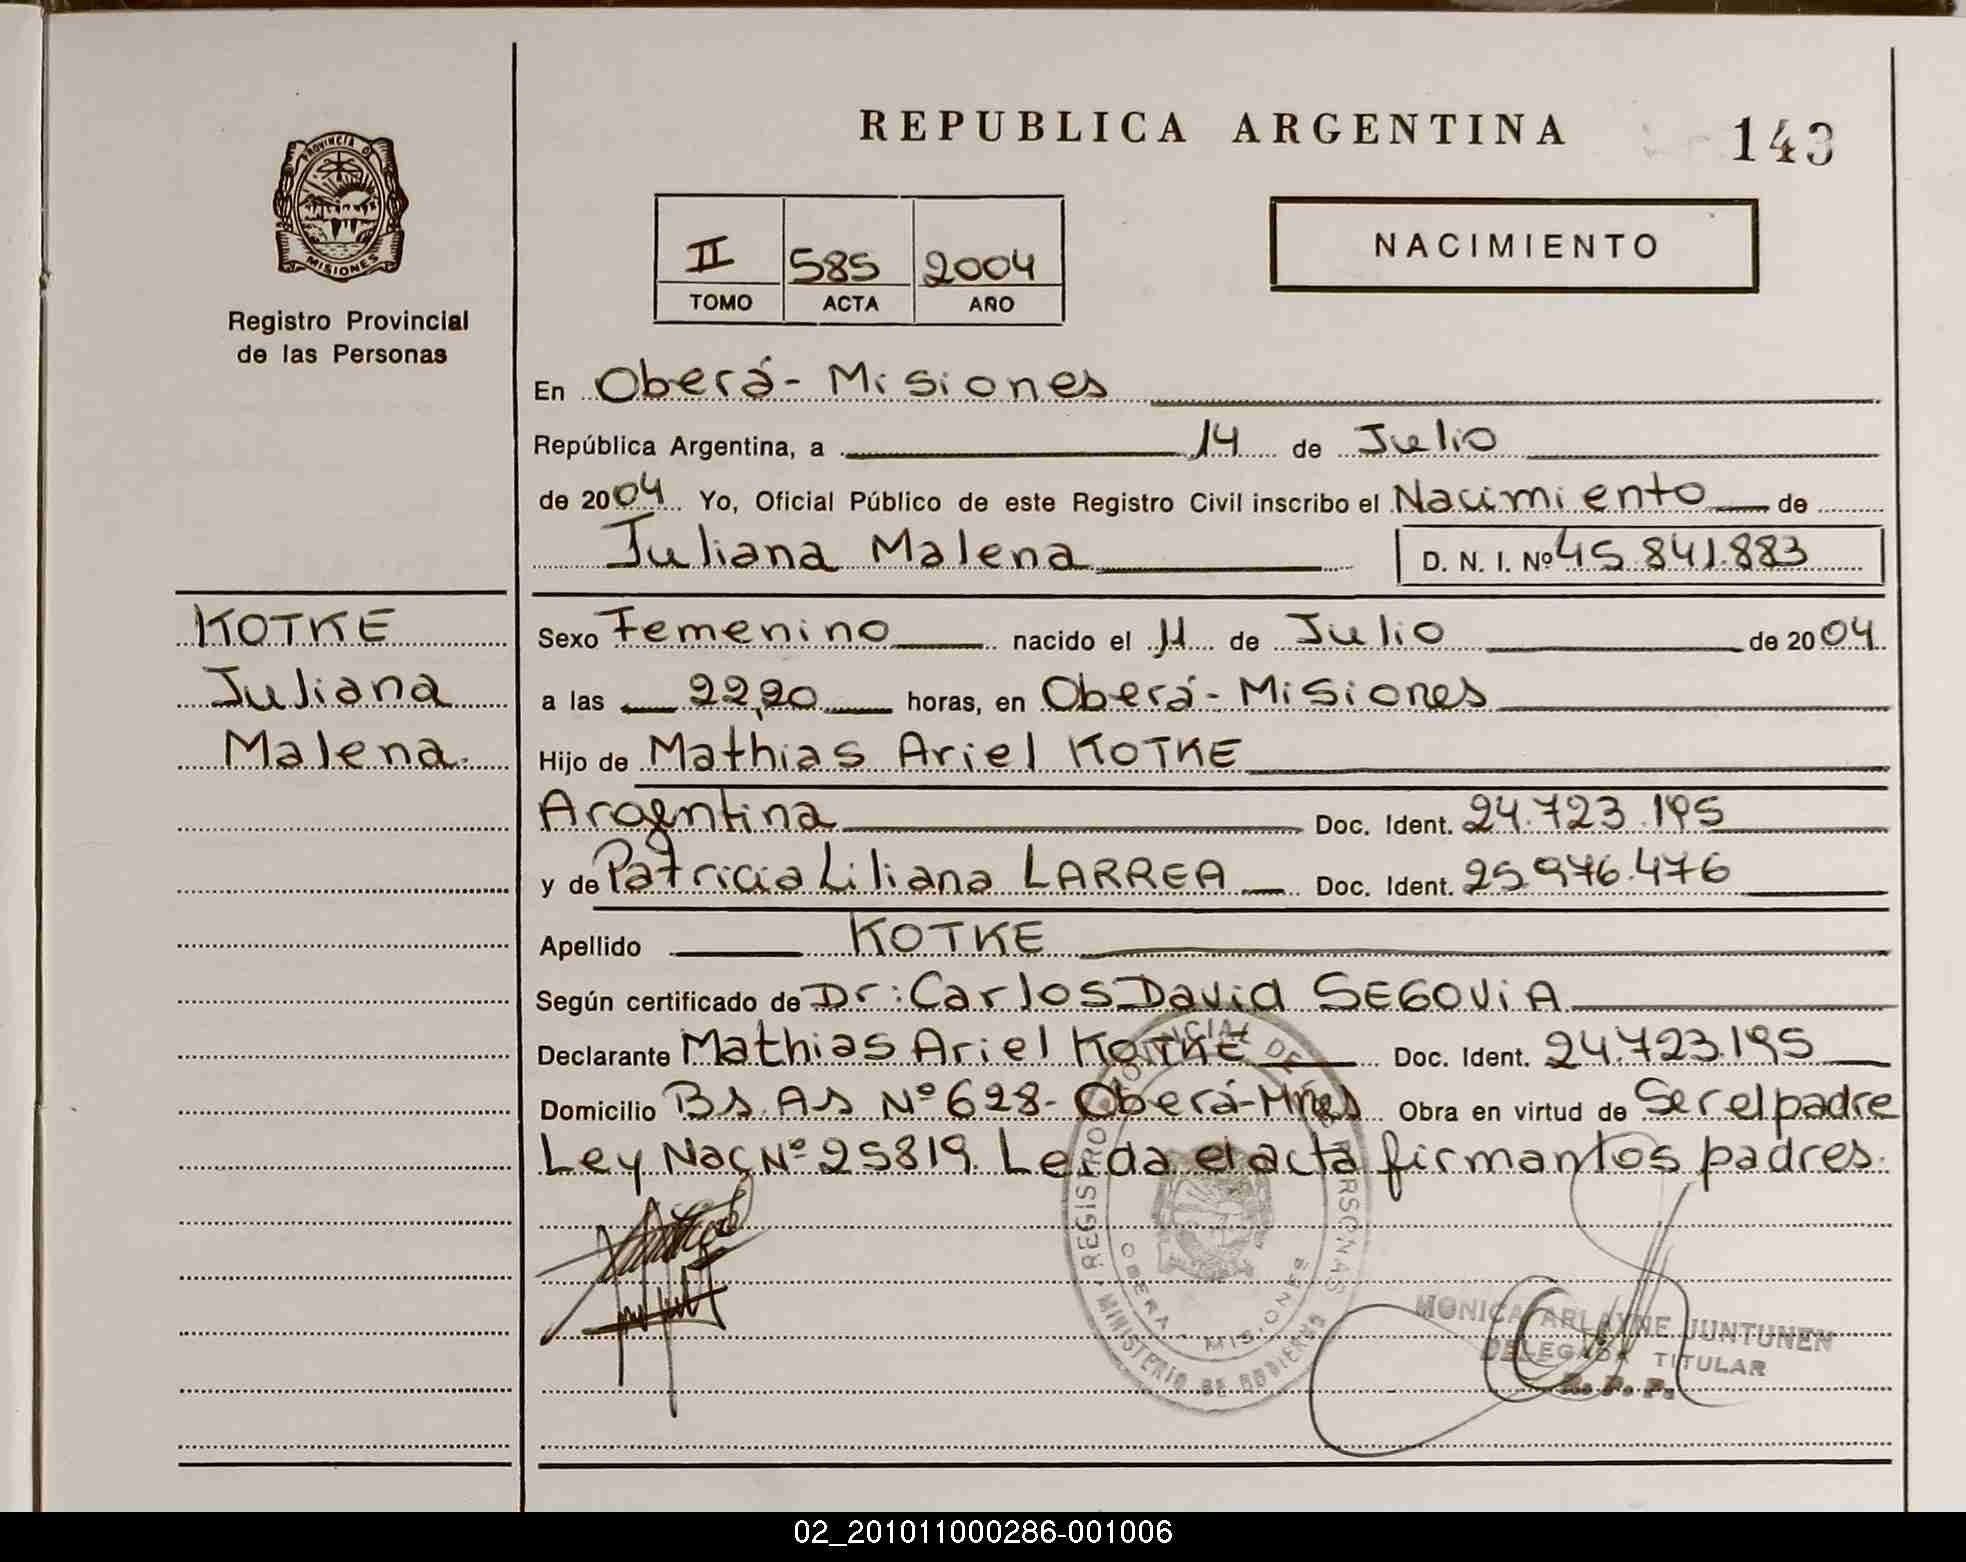 REPUBLICA ARGENTINA
143
PROVINCIA DE
MISIONES
Registro Provincial
de las Personas
II 585 2004
TOMO ACTA AÑO
NACIMIENTO
En Oberá - Misiones
República Argentina, a 14 de Julio
de 2004 Yo, Oficial Público de este Registro Civil inscribo el Nacimiento de
Juliana Malena D. N. I. Nº 45.841.883
KOTKE
Juliana
Malena.
Sexo Femenino nacido el 11 de Julio de 2004
a las 22,20 horas, en Oberá - Misiones
Hijo de Mathias Ariel KOTKE
Argentina Doc. Ident. 24.723.195
y de Patricia Liliana LARREA Doc. Ident. 25.976.476
Apellido KOTKE
Según certificado de Dr: Carlos David SEGOViA
Declarante Mathias Ariel KOTKE Doc. Ident. 24.723.195
Domicilio Bs. As Nº 628 - Oberá - Mnes Obra en virtud de Ser el padre
Ley Nac Nº 25819. Leida el acta firman los padres.
REGISTRO PROVINCIAL DE LAS PERSONAS
OBERA - MISIONES
MINISTERIO DE GOBIERNO
MONICA ARLAYNE JUNTUNEN
DELEGADA TITULAR
R. P. P.
02_201011000286-001006